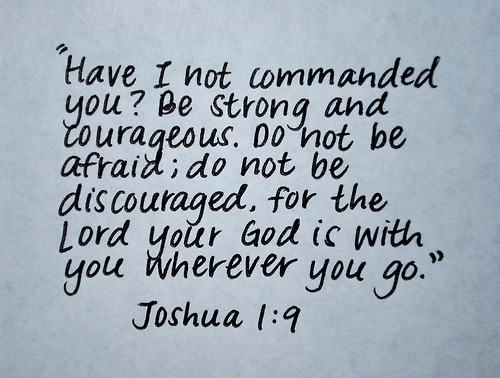 "Have I not commanded
you? Be strong and
courageous. Do not be
afraid; do not be
discouraged, for the
Lord your God is with
you wherever you go."
Joshua 1:9